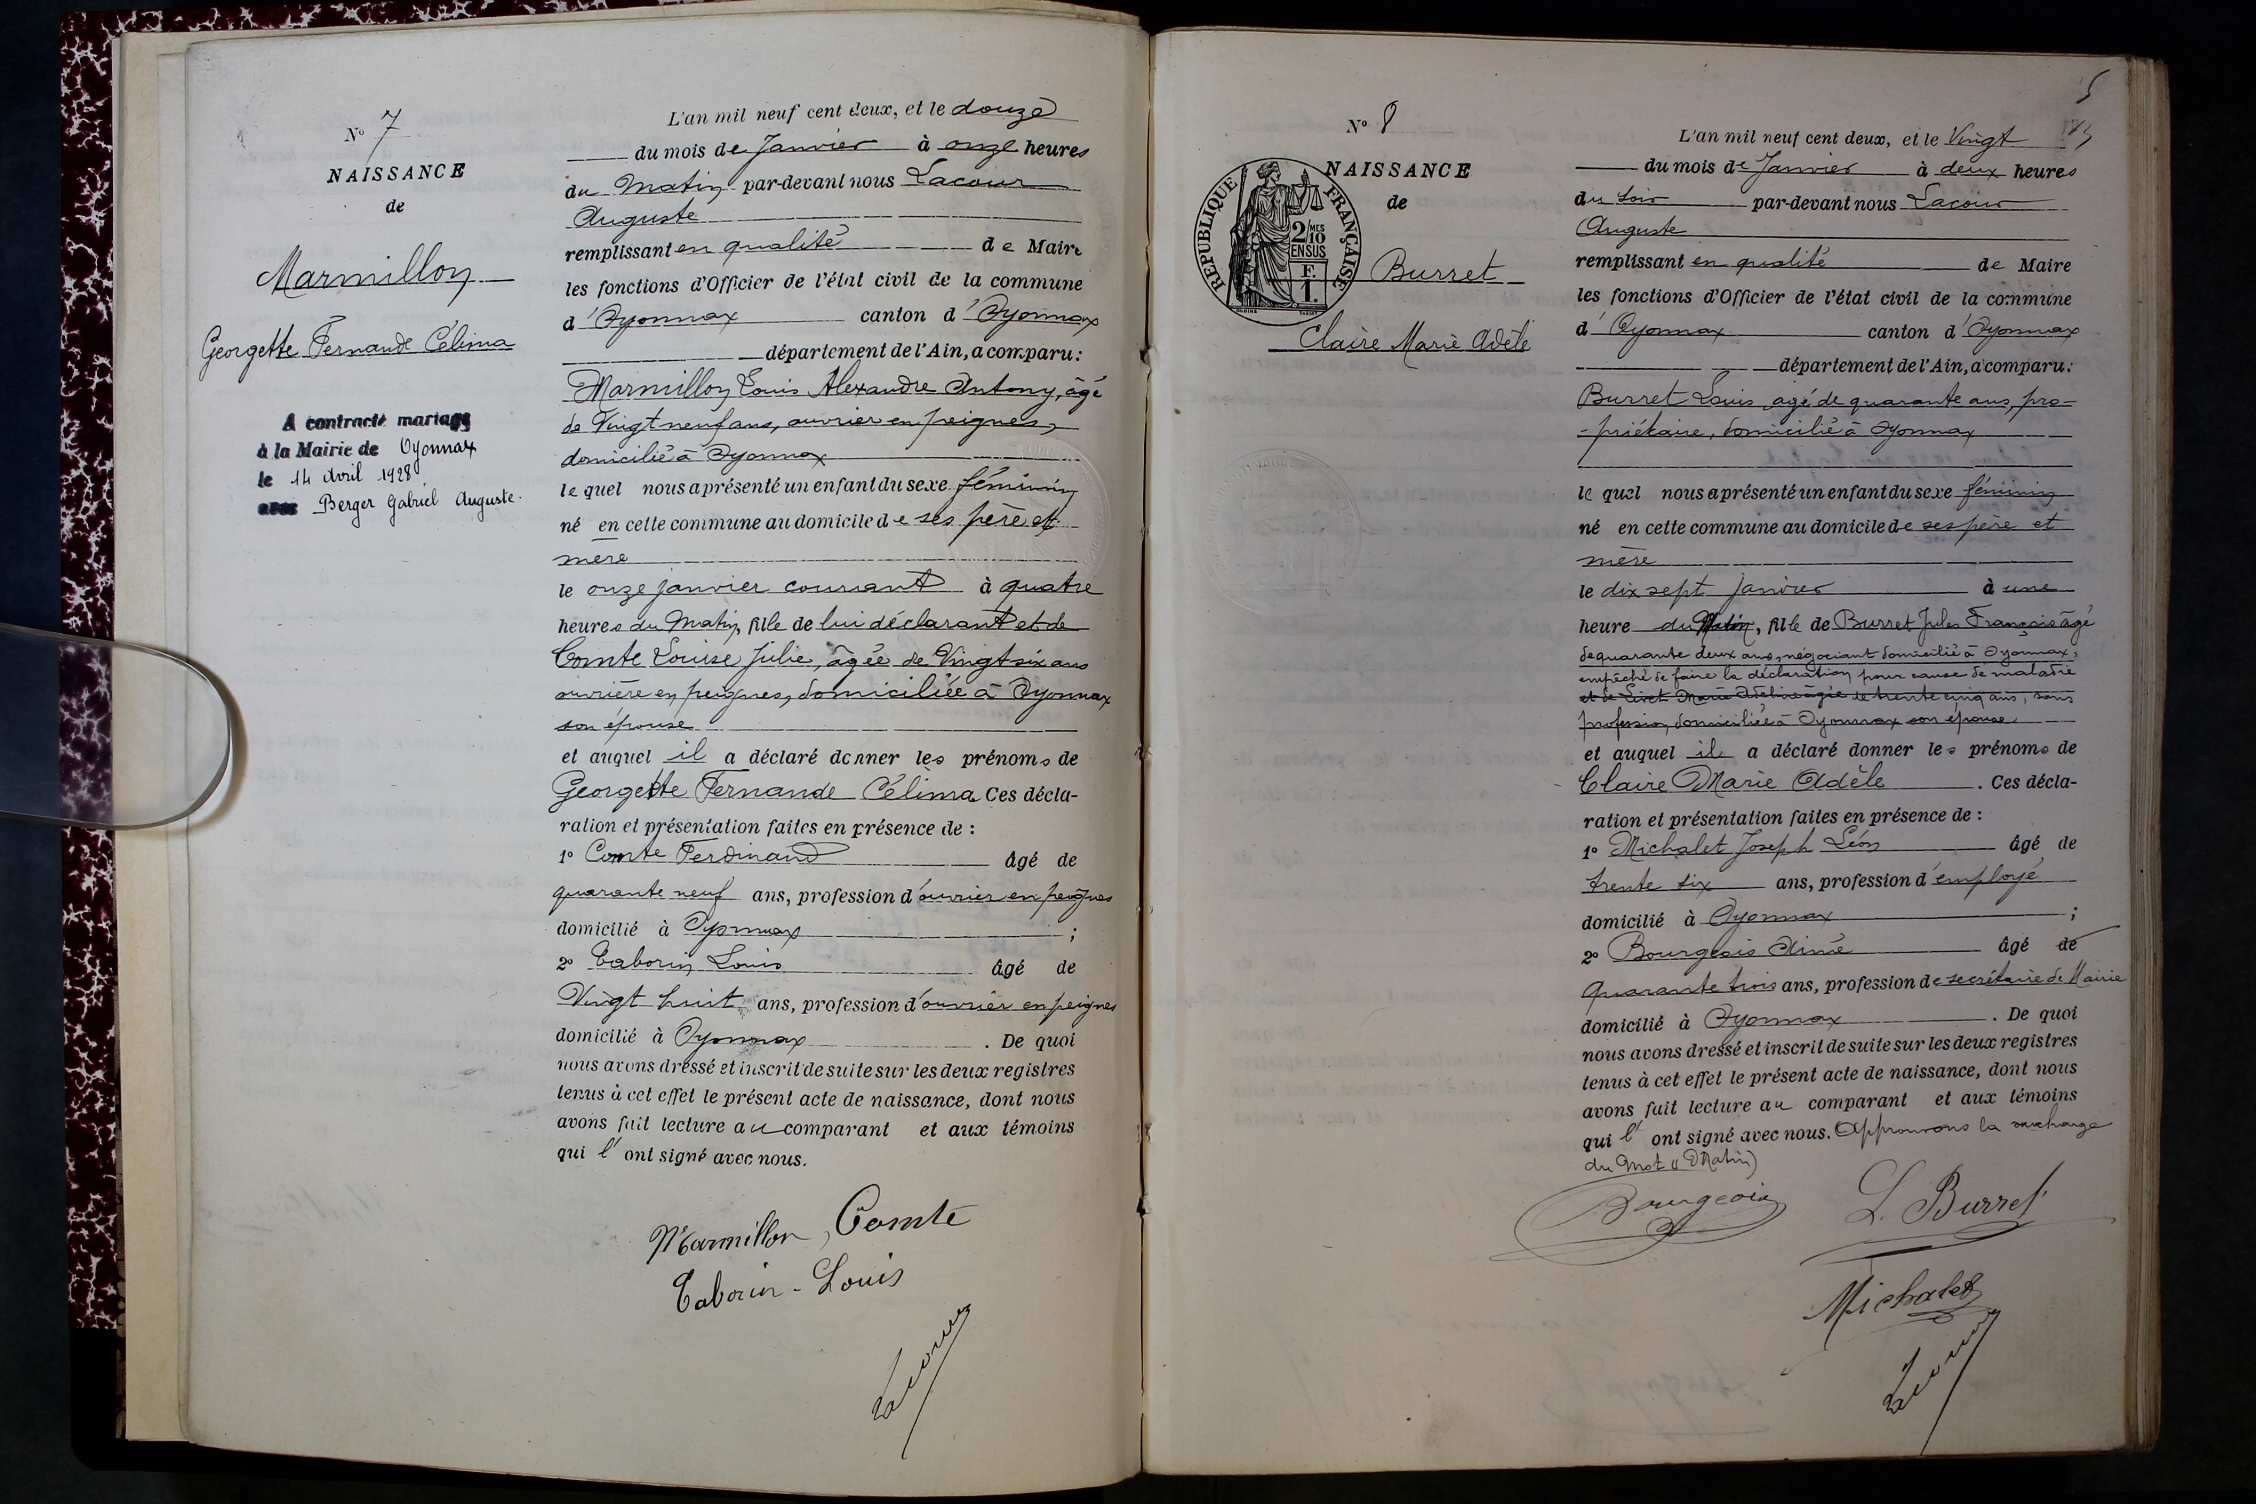 N° 7
NAISSANCE
de
Marmillon
Georgette Fernande Célima
A contracté mariage
à la Mairie de Oyonnax
le 14 Avril 1928
avec Berger Gabriel Auguste.
L'an mil neuf cent deux, et le douze
du mois de Janvier à onze heures
du Matin par-devant nous Lacour
Auguste
remplissant en qualité de Maire
les fonctions d'Officier de l'état civil de la commune
d'Oyonnax canton d'Oyonnax
département de l'Ain, a comparu:
Marmillon Louis Alexandre Antony, âgé
de Vingt neuf ans, ouvrier en peignes,
domicilié à Oyonnax
lequel nous a présenté un enfant du sexe féminin
né en cette commune au domicile de ses père et
mère
le onze janvier courant à quatre
heures du Matin, fille de lui déclarant et de
Comte Louise Julie, âgée de Vingt six ans
ouvrière en peignes, domiciliée à Oyonnax
son épouse
et auquel il a déclaré donner les prénoms de
Georgette Fernande Célima Ces décla-
ration et présentation faites en présence de :
1° Comte Ferdinand âgé de
quarante neuf ans, profession d'ouvrier en peignes
domicilié à Oyonnax ;
2° Taborin Louis âgé de
Vingt huit ans, profession d'ouvrier en peignes
domicilié à Oyonnax . De quoi
nous avons dressé et inscrit de suite sur les deux registres
tenus à cet effet le présent acte de naissance, dont nous
avons fait lecture au comparant et aux témoins
qui l'ont signé avec nous.
Marmillon, Comte
Taborin - Louis
Lacour
5
N° 8
NAISSANCE
de
RÉPUBLIQUE FRANÇAISE
2/10 MES
EN SUS
F.
1.
Burret
Claire Marie Adèle
L'an mil neuf cent deux, et le Vingt
du mois de Janvier à deux heures
du soir par-devant nous Lacour
Auguste
remplissant en qualité de Maire
les fonctions d'Officier de l'état civil de la commune
d'Oyonnax canton d'Oyonnax
département de l'Ain, a comparu:
Burret Louis âgé de quarante ans, pro-
-priétaire, domicilié à Oyonnax
lequel nous a présenté un enfant du sexe féminin
né en cette commune au domicile de ses père et
mère
le dix sept janvier à une
heure du Matin, fille de Burret Jules François âgé
de quarante deux ans, négociant domicilié à Oyonnax,
empêché de faire la déclaration pour cause de maladie
et de Marie Adeline âgée de trente cinq ans, sans
profession, domiciliée à Oyonnax son épouse
et auquel il a déclaré donner les prénoms de
Claire Marie Adèle . Ces décla-
ration et présentation faites en présence de :
1° Michalet Joseph Léon âgé de
trente six ans, profession d'employé
domicilié à Oyonnax ;
2° Bourgeois Aimé âgé de
Quarante trois ans, profession de secrétaire de Mairie
domicilié à Oyonnax . De quoi
nous avons dressé et inscrit de suite sur les deux registres
tenus à cet effet le présent acte de naissance, dont nous
avons fait lecture au comparant et aux témoins
qui l'ont signé avec nous. Approuvons la surcharge
du mot "Matin)
Bourgeois L. Burret
Michalet
Lacour